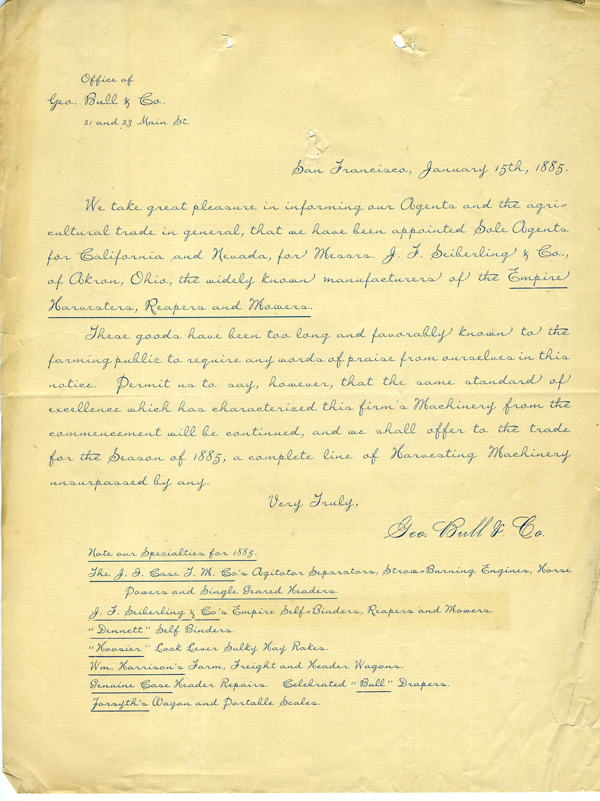 Office of
Geo. Bull & Co.
21 and 23 Main St.
San Francisco, January 15th, 1885.
We take great pleasure in informing our Agents and the agri-
cultural trade in general, that we have been appointed Sole Agents
for California and Nevada, for Messrs. J. F. Seiberling & Co.,
of Akron, Ohio, the widely known manufacturers of the Empire
Harvesters, Reapers and Mowers.
These goods have been too long and favorably known to the
farming public to require any words of praise from ourselves in this
notice. Permit us to say, however, that the same standard of
excellence which has characterized this firm's Machinery from the
commencement will be continued, and we shall offer to the trade
for the Season of 1885, a complete line of Harvesting Machinery
unsurpassed by any.
Very Truly,
Geo. Bull & Co.
Note our Specialties for 1885.
The J. I. Case T. M. Co's Agitator Separators, Straw-Burning Engines, Horse
Powers and Single Geared Headers.
J. F. Seiberling & Co's Empire Self-Binders, Reapers and Mowers.
"Dennett" Self Binders.
"Hoosier" Lock Lever Sulky Hay Rakes.
Wm. Harrison's Farm, Freight and Header Wagons.
Genuine Case Header Repairs. Celebrated "Bull" Drapers.
Forsyth's Wagon and Portable Scales.